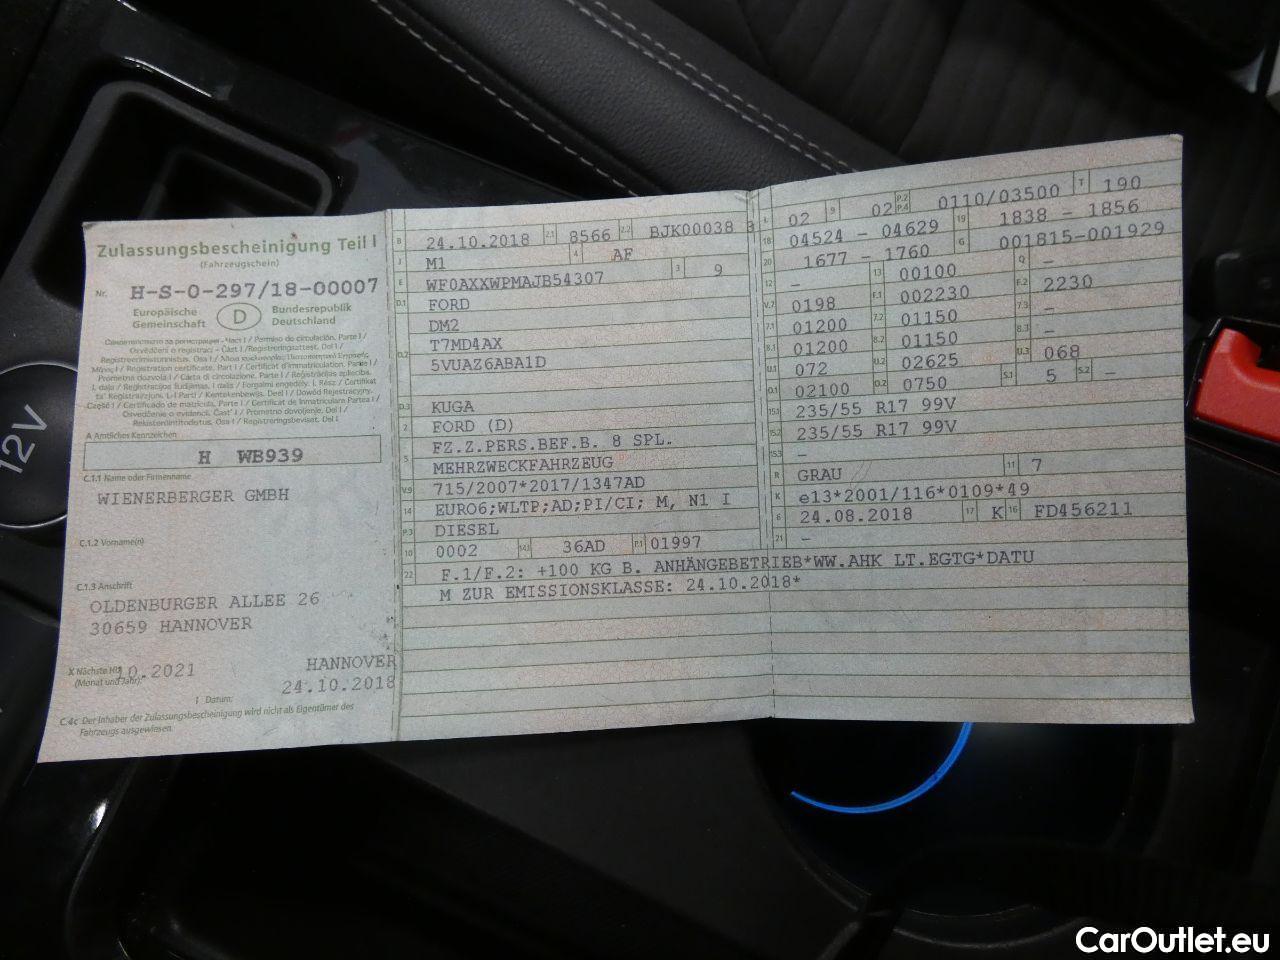 12V
Zulassungsbescheinigung Teil I
(Fahrzeugschein)
Nr. H-S-0-297/18-00007
Europäische Gemeinschaft
D
Bundesrepublik Deutschland
A Amtliches Kennzeichen
H WB939
C.1.1 Name oder Firmenname
WIENERBERGER GMBH
C.1.2 Vorname(n)
C.1.3 Anschrift
OLDENBURGER ALLEE 26
30659 HANNOVER
X Nächste HU
(Monat und Jahr):
10.2021
HANNOVER
24.10.2018
I Datum:
C.4c Der Inhaber der Zulassungsbescheinigung wird nicht als Eigentümer des
Fahrzeugs ausgewiesen.
B 24.10.2018 2.1 8566 2.2 BJK00038
J M1 4 AF
E WF0AXXWPMAJB54307 3 9
D.1 FORD
DM2
D.2 T7MD4AX
5VUAZ6ABA1D
D.3 KUGA
2 FORD (D)
5 FZ.Z.PERS.BEF.B. 8 SPL.
MEHRZWECKFAHRZEUG
V.9 715/2007*2017/1347AD
14 EURO6;WLTP;AD;PI/CI; M, N1 I
P.3 DIESEL
10 0002 14.1 36AD P.1 01997
22 F.1/F.2: +100 KG B. ANHÄNGEBETRIEB*WW.AHK LT.EGTG*DATU
M ZUR EMISSIONSKLASSE: 24.10.2018*
L 02 9 02 P.2 P.4 0110/03500 T 190
18 04524 - 04629 19 1838 - 1856
20 1677 - 1760 G 001815-001929
12 - 13 00100 Q -
V.7 0198 F.1 002230 F.2 2230
7.1 01200 7.2 01150 7.3 -
8.1 01200 8.2 01150 8.3 -
U.1 072 U.2 02625 U.3 068
O.1 02100 O.2 0750 S.1 5 S.2 -
15.1 235/55 R17 99V
15.2 235/55 R17 99V
15.3 -
R GRAU 11 7
K e13*2001/116*0109*49
6 24.08.2018 17 K 16 FD456211
21 -
CarOutlet.eu